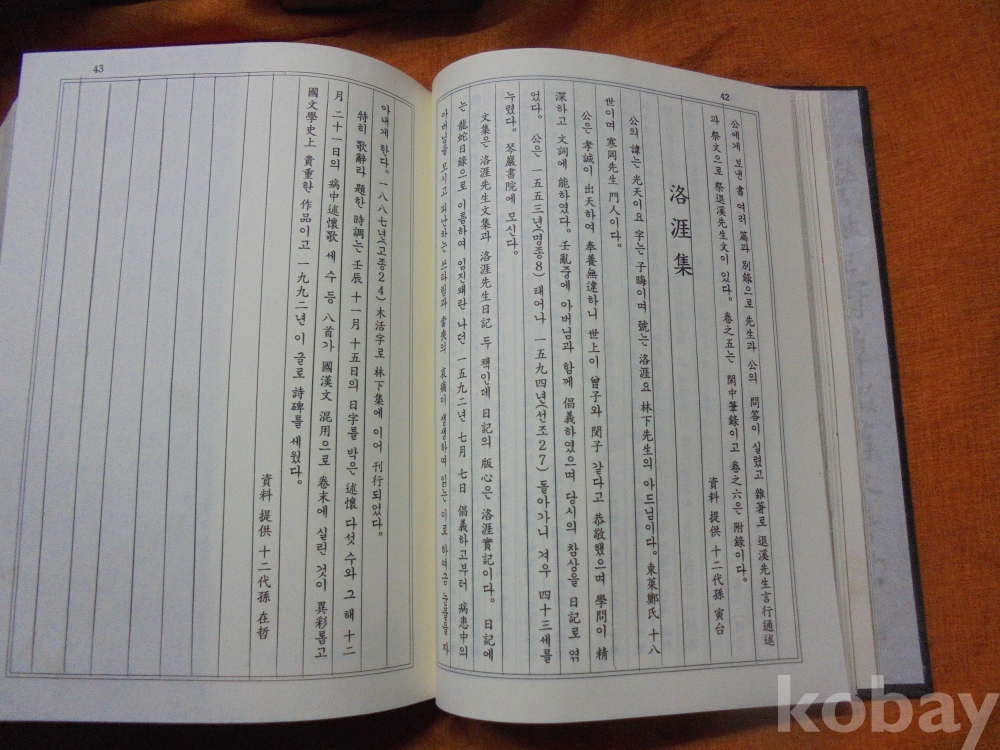 42
公에게 보낸 書 여러 篇과 別錄으로 先生과 公의 問答이 실렸고 雜著로 退溪先生言行通述
과 祭文으로 祭退溪先生文이 있다. 卷之五는 閑中筆錄이고 卷之六은 附錄이다.
資料 提供 十二代孫 寅台
洛涯集
公의 諱는 光天이요 字는 子晦이며 號는 洛涯요 林下先生의 아드님이다. 東萊鄭氏 十八
世이며 寒岡先生 門人이다.
公은 孝誠이 出天하여 奉養無違하니 世上이 曾子와 閔子 같다고 恭敬했으며 學問이 精
深하고 文詞에 能하였다. 壬亂중에 아버님과 함께 倡義하였으며 당시의 참상을 日記로 엮
었다. 公은 一五五三년(명종8) 태어나 一五九四년(선조27) 돌아가니 겨우 四十三세를
누렸다. 琴巖書院에 모신다.
文集은 洛涯先生文集과 洛涯先生日記 두 책인데 日記의 版心은 洛涯實記이다. 日記에
는 龍蛇日錄으로 이름하여 임진왜란 나던 一五九二년 七月 七日 倡義하고부터 病患中의
아버님을 모시고 피난하는 쓰라림과 當喪의 哀痛이 생생하여 읽는 이로 하여금 눈물을 자
43
아내게 한다. 一八八七년(고종24) 木活字로 林下集에 이어 刊行되었다.
特히 歌辭라 題한 時調는 壬辰 十一月 十五日의 日字를 박은 述懷 다섯 수와 그 해 十二
月 二十一日의 病中述懷歌 세 수 등 八首가 國漢文 混用으로 卷末에 실린 것이 異彩롭고
國文學史上 貴重한 作品이고 一九九二년 이 글로 詩碑를 세웠다.
資料 提供 十二代孫 在哲
kobay